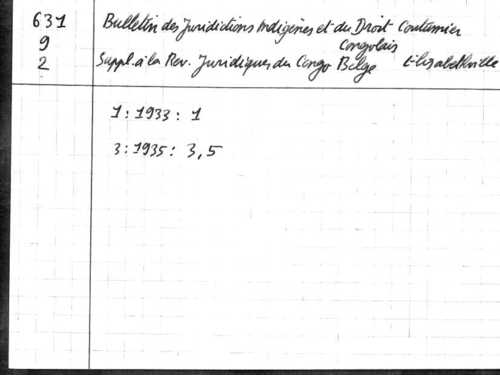 631 Bulletin des Juridictions Indigènes et du Droit Coutumier
9 Congolais
2 Suppl. à la Rev. Juridiques du Congo Belge Elisabethville
1 : 1933 : 1
3 : 1935 : 3, 5